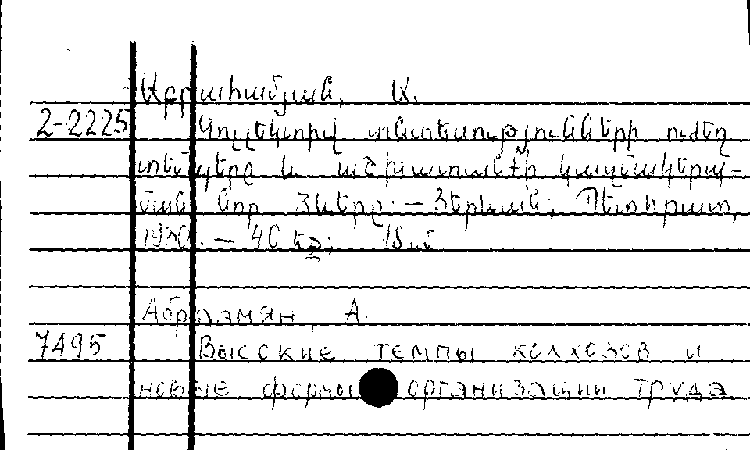 Աբրահամյան, Ա.
2-2225 Կոլլեկտիվ տնտեսությունների ուժեղ
տեմպերը և աշխատանքի կազմակերպ-
ման նոր ձևերը: — Յերևան, Պետհրատ,
— 40 էջ; 18սմ
Абраамян, А.
7495 Высокие темпы колхозов и
новые формы организации труда.